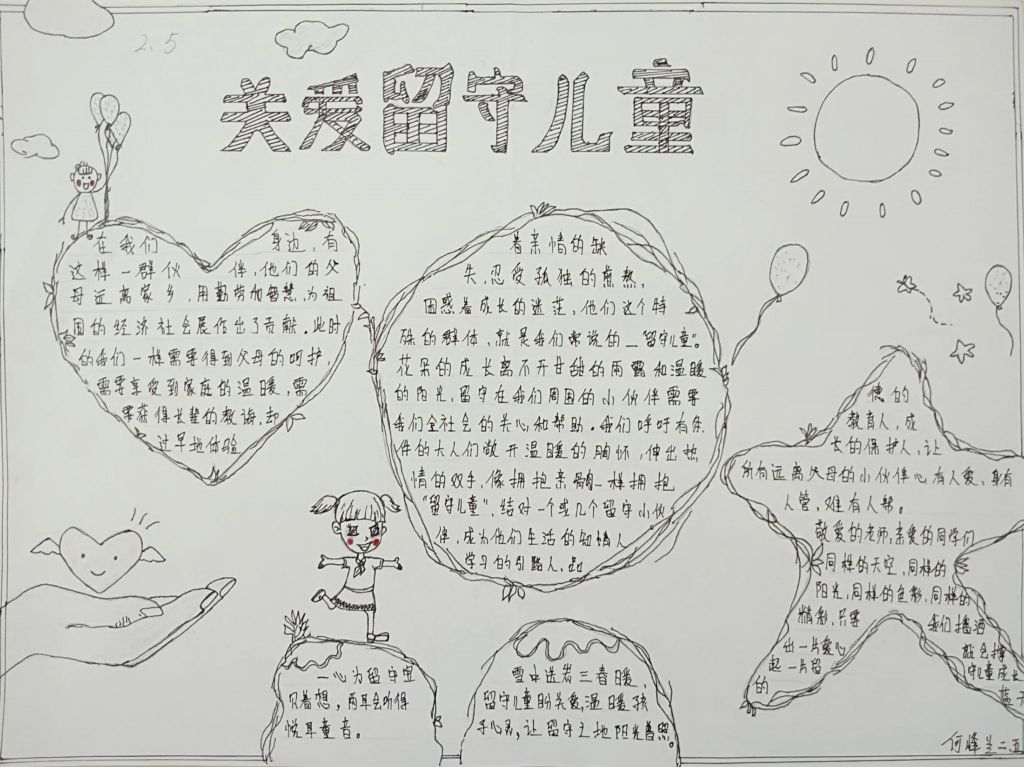 2.5
关爱留守儿童
在我们 身边,有
这样一群伙 伴,他们的父
母远离家乡,用勤劳加智慧,为祖
国的经济社会展作出了贡献。此时
的我们一样需要得到父母的呵护,
需要享受到家庭的温暖,需
要获得长辈的教诲,却
过早地体验
着亲情的缺
失,忍受孤独的煎熬,
困惑着成长的迷茫,他们这个特
殊的群体,就是我们常说的—"留守儿童"。
花朵的成长离不开甘甜的雨露和温暖
的阳光,留守在我们周围的小伙伴需要
我们全社会的关心和帮助。我们呼吁有条
件的大人们敞开温暖的胸怀,伸出热
情的双手,像拥抱亲骨肉一样拥抱
"留守儿童",结对一个或几个留守小伙
伴,成为他们生活的知情人
学习的引路人,品
德的
教育人,成
长的保护人,让
所有远离父母的小伙伴心有人爱,身有
人管,难有人帮。
敬爱的老师,亲爱的同学们
同样的天空,同样的
阳光,同样的色彩,同样的
精彩,只要 我们播洒
出一片爱心 就会撑
起一片留 守儿童成长
的 蓝天
一心为留守宝
贝着想,两耳会听得
悦耳童音。
雪中送炭三春暖,
留守儿童盼关爱,温暖孩
子心灵,让留守之地阳光普照。
何峰兰二.五